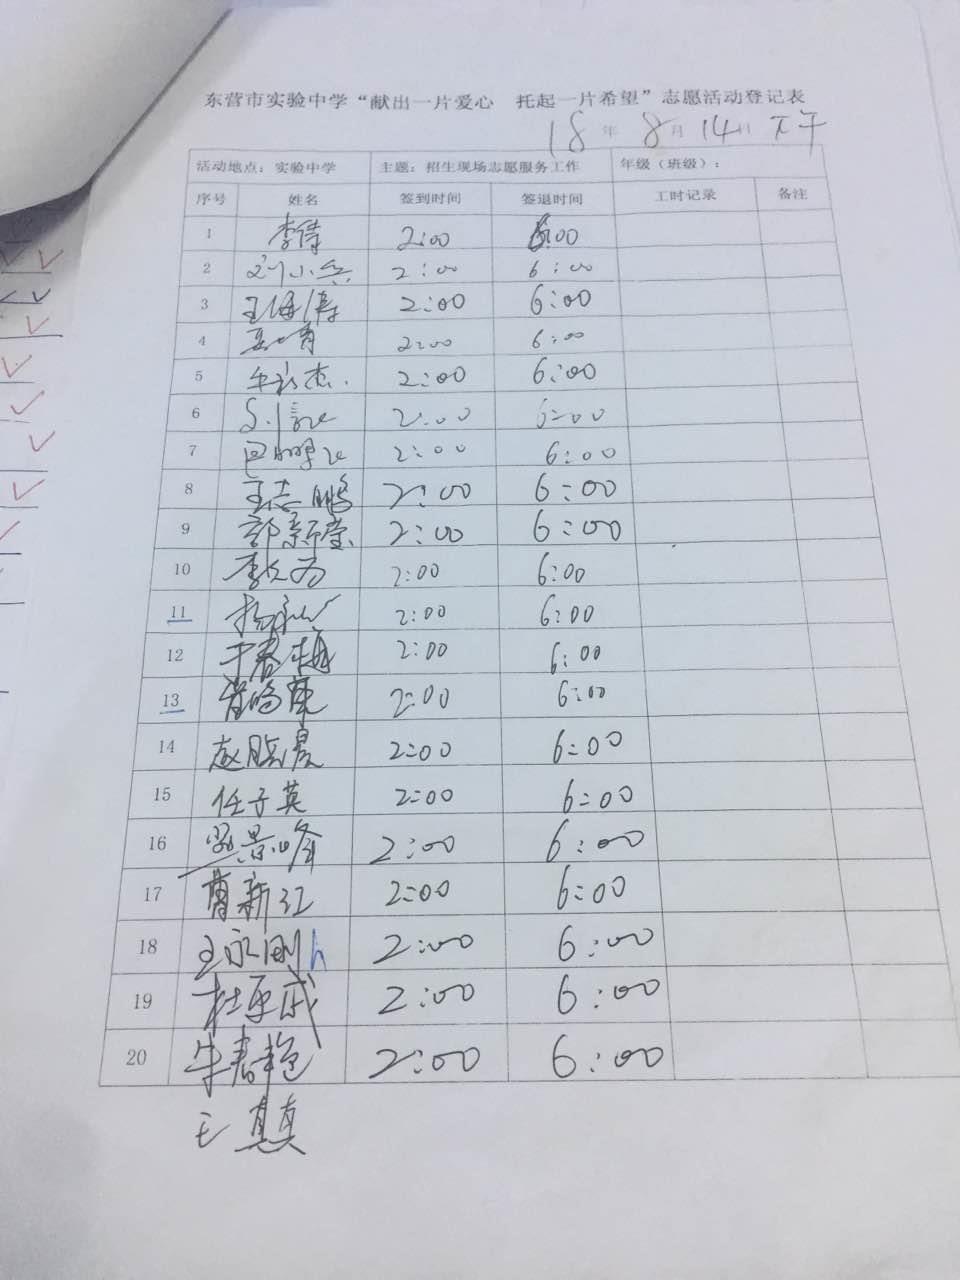 东营市实验中学“献出一片爱心 托起一片希望”志愿活动登记表
18年 8月 14日 下午
活动地点：实验中学 主题：招生现场志愿服务工作 年级（班级）：
序号 姓名 签到时间 签退时间 工时记录 备注
1 李倩 2:00 6:00
2 刘小兵 2:00 6:00
3 王海涛 2:00 6:00
4 2:00 6:00
5 2:00 6:00
6 2:00 6:00
7 2:00 6:00
8 王志鹏 2:00 6:00
9 郭新莹 2:00 6:00
10 2:00 6:00
11 2:00 6:00
12 于春梅 2:00 6:00
13 2:00 6:00
14 赵晨 2:00 6:00
15 任子英 2:00 6:00
16 景峰 2:00 6:00
17 曹新江 2:00 6:00
18 王永刚 2:00 6:00
19 杜 2:00 6:00
20 牛春艳 2:00 6:00
王真真